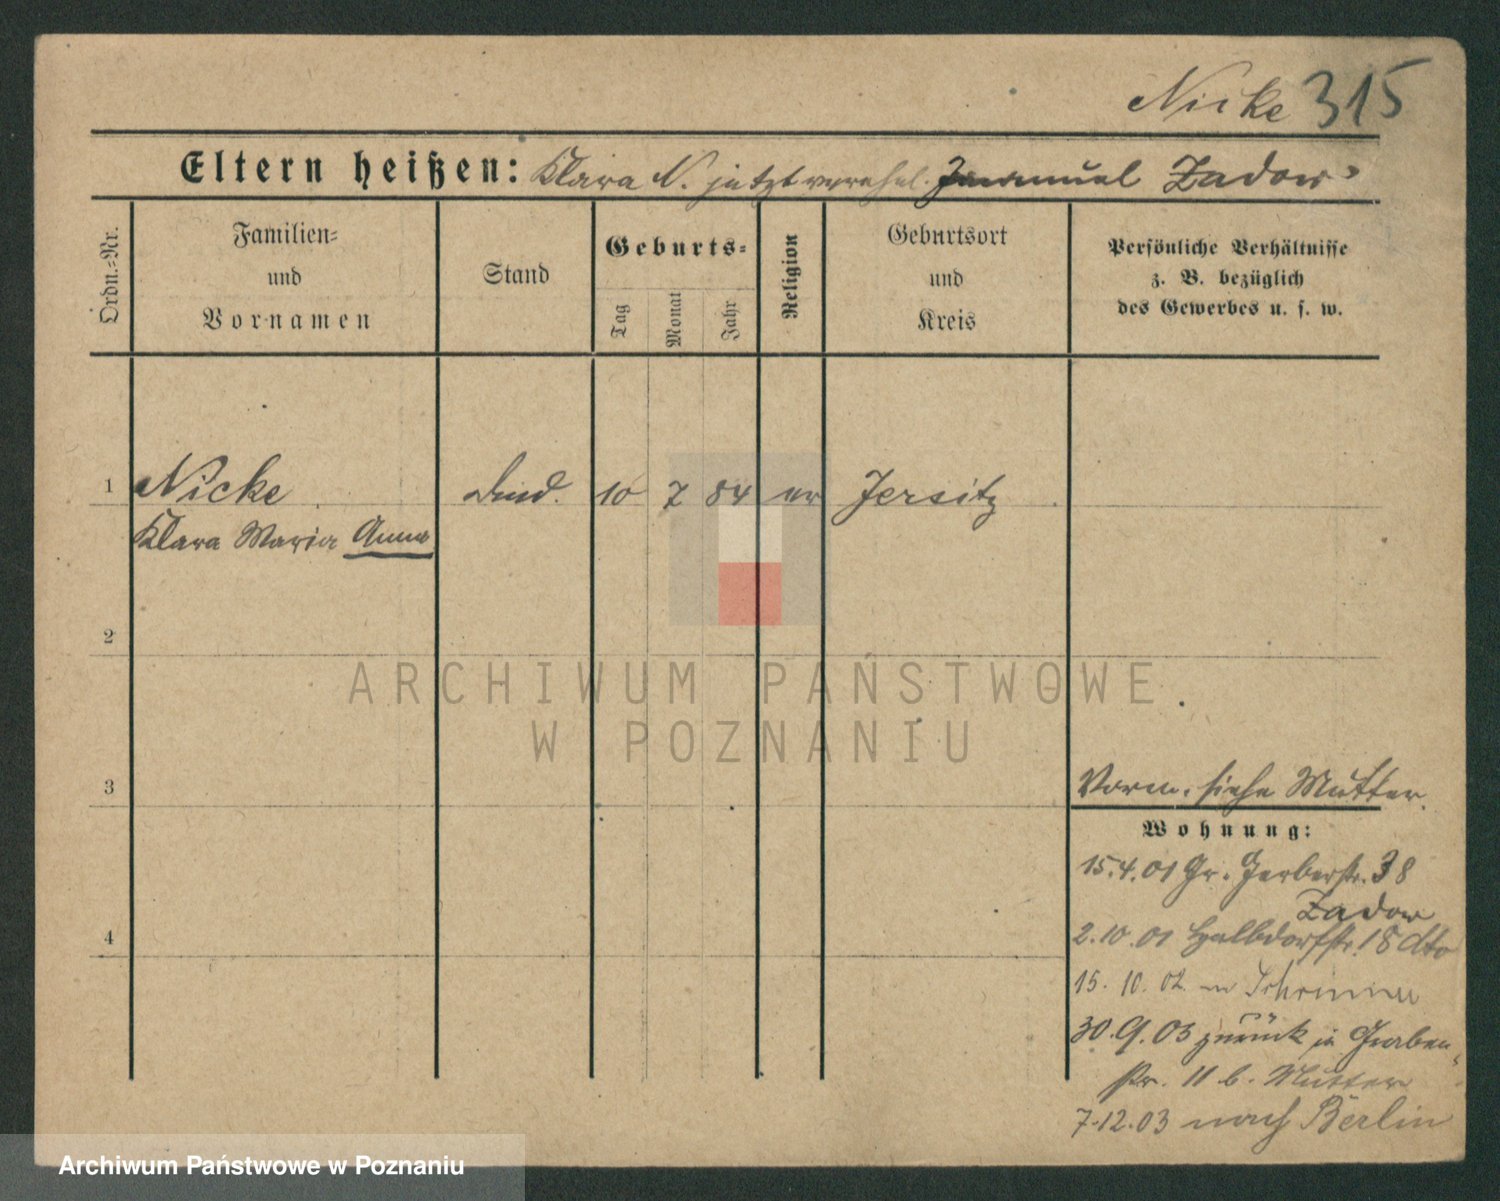 Nicke 315
Eltern heißen: Klara N. jetzt verehel. Zadow
Ordn.=Nr.
Familien=
und
Vornamen
Stand
Geburts=
Tag
Monat
Jahr
Religion
Geburtsort
und
Kreis
Persönliche Verhältnisse
z. B. bezüglich
des Gewerbes u. s. w.
1 Nicke 10 7 84 ev Jersitz
Klara Maria Anna
2
3
4
Vorm. siehe Mutter.
Wohnung:
15.4.01 Gr. Gerberstr. 38
Zadow
2.10.01 Halbdorfstr. 18 dto
15. 10. 02. n Schrimm
30.9.03 zurück in Graben-
str. 11 b. Mutter
7.12.03 nach Berlin
ARCHIWUM PAŃSTWOWE
W POZNANIU
Archiwum Państwowe w Poznaniu